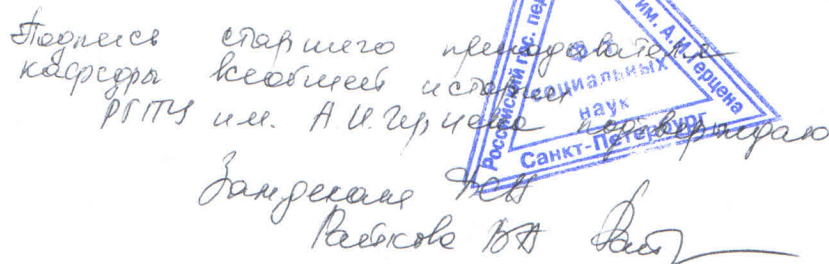 Подпись старшего преподавателя
кафедры всеобщей истории
РГПУ им. А.И. Герцена подтверждаю
Российский гос. пед.
им. А.И. Герцена
социальных
наук
Санкт-Петербург
Зам декана ФСН